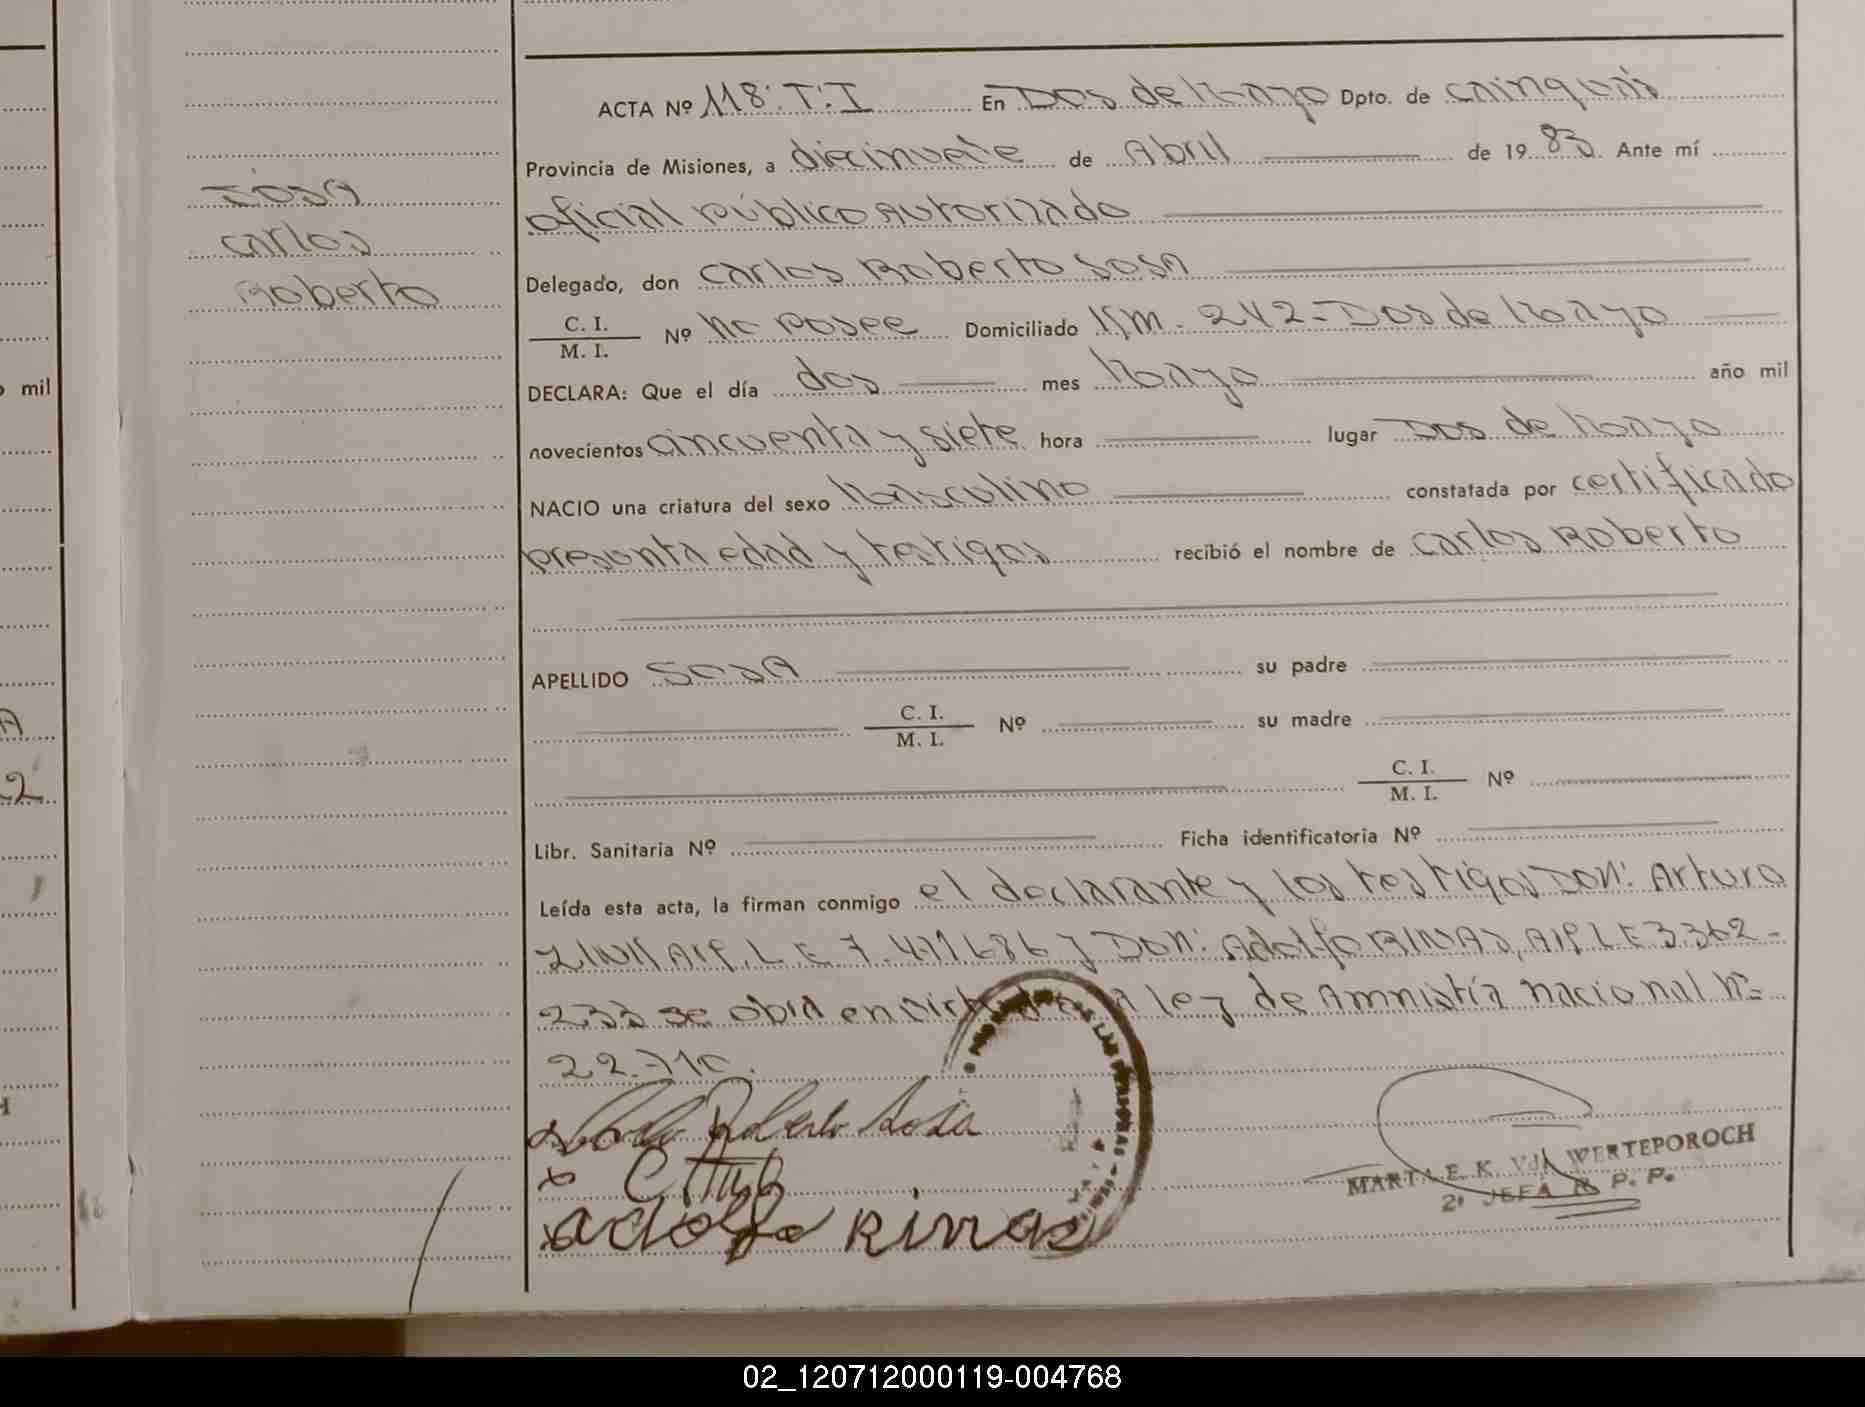 ACTA Nº 118. T. I En Dos de Mayo Dpto. de Cainguás
Provincia de Misiones, a diecinueve de Abril de 1983. Ante mí
oficial Público Autorizado
Delegado, don Carlos Roberto Sosa
C. I.
M. I. Nº no posee Domiciliado Km. 242-Dos de Mayo
DECLARA: Que el día dos mes Mayo año mil
novecientos cincuenta y siete hora lugar Dos de Mayo
NACIO una criatura del sexo Masculino constatada por certificado
presunta edad y testigos recibió el nombre de Carlos Roberto
APELLIDO SOSA su padre
C. I.
M. I. Nº su madre
C. I.
M. I. Nº
Libr. Sanitaria Nº Ficha identificatoria Nº
Leída esta acta, la firman conmigo el declarante y los testigos Don: Arturo
L E 7. y Don: Adolfo RINAS, AIP L E 3.362-
233 se obra en a ley de Amnistía nacional Nº
22.
Roberto Sosa
adolfo Rinas
MARTA E. K. VDA WERTEPOROCH
2ª JEFA R. P. P.
SOSA
Carlos
Roberto
mil
A
22
02_120712000119-004768